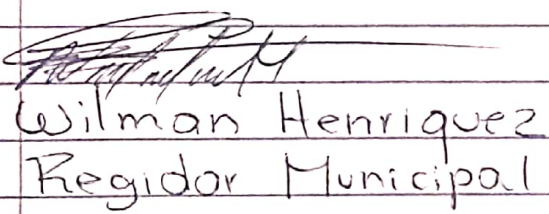 Wilman Henriquez
Regidor Municipal